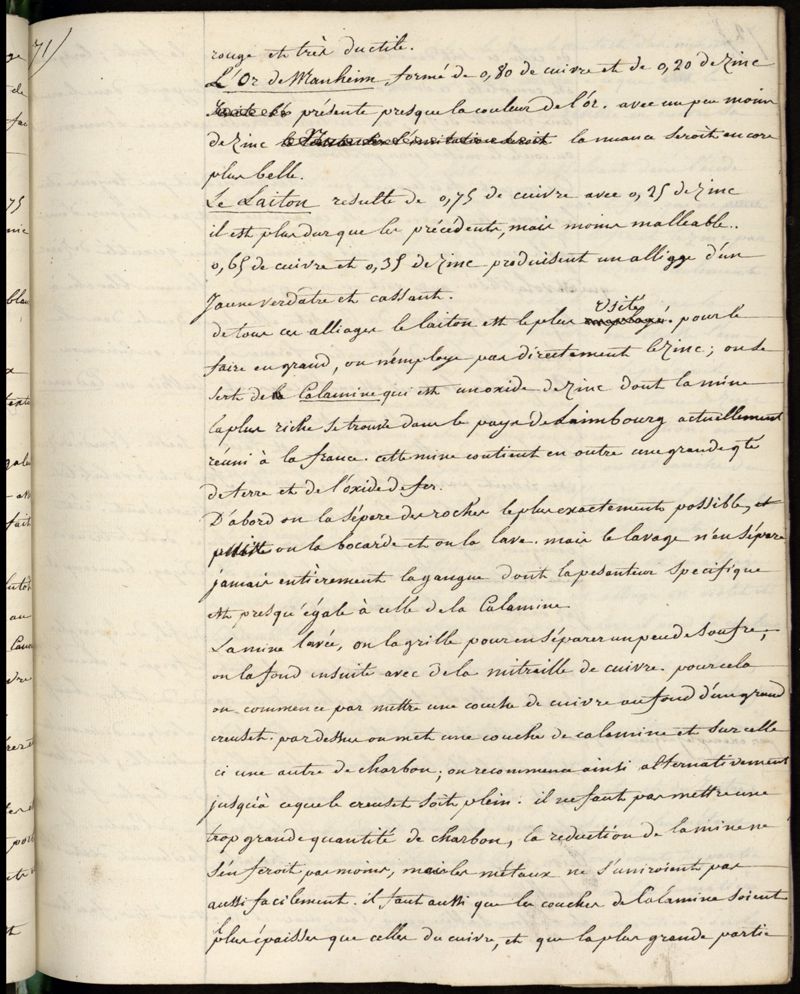 71)
rouge et très ductile.
L'Or de Manheim formé de 0,80 de cuivre et de 0,20 de Zinc
présente presque la couleur de l'or. avec un peu moins
de Zinc la nuance seroit encore
plus belle.
Le Laiton resulte de 0,75 de cuivre avec 0,25 de Zinc
il est plus dur que les précédents, mais moins malleable..
0,65 de cuivre et 0,35 de Zinc produisent un alliage d'un
Jaune verdatre et cassant.
usité
de tous ces alliages le laiton est le plus employé. pour le
faire en grand, on n'employe pas directement le Zinc; on se
sert de la Calamine qui est un oxide de Zinc dont la mine
la plus riche se trouve dans le pays de Laimbourg actuellement
réuni à la france. cette mine contient en outre une grande qté
de terre et de l'oxide de fer.
D'abord on la sépare des roches le plus exactement possible, et
puis on la bocarde et on la lave. mais le lavage n'en sépare
jamais entièrement la gangue dont la pesanteur specifique
est presqu'égale à celle de la Calamine
La mine lavée, on la grille pour en séparer un peu de soufre,
on la fond ensuite avec de la mitraille de cuivre. pour cela
on commence par mettre une couche de cuivre au fond d'un grand
creuset. par dessus on met une couche de calamine et sur celle
ci une autre de charbon; on recommence ainsi alternativement
jusqu'à ce que le creuset soit plein. il ne faut pas mettre une
trop grande quantité de charbon, la reduction de la mine ne
s'en feroit pas moins, mais les métaux ne s'uniroient pas
aussi facilement. il faut aussi que les couches de Calamine soient
plus épaisses que celles du cuivre, et que la plus grande partie